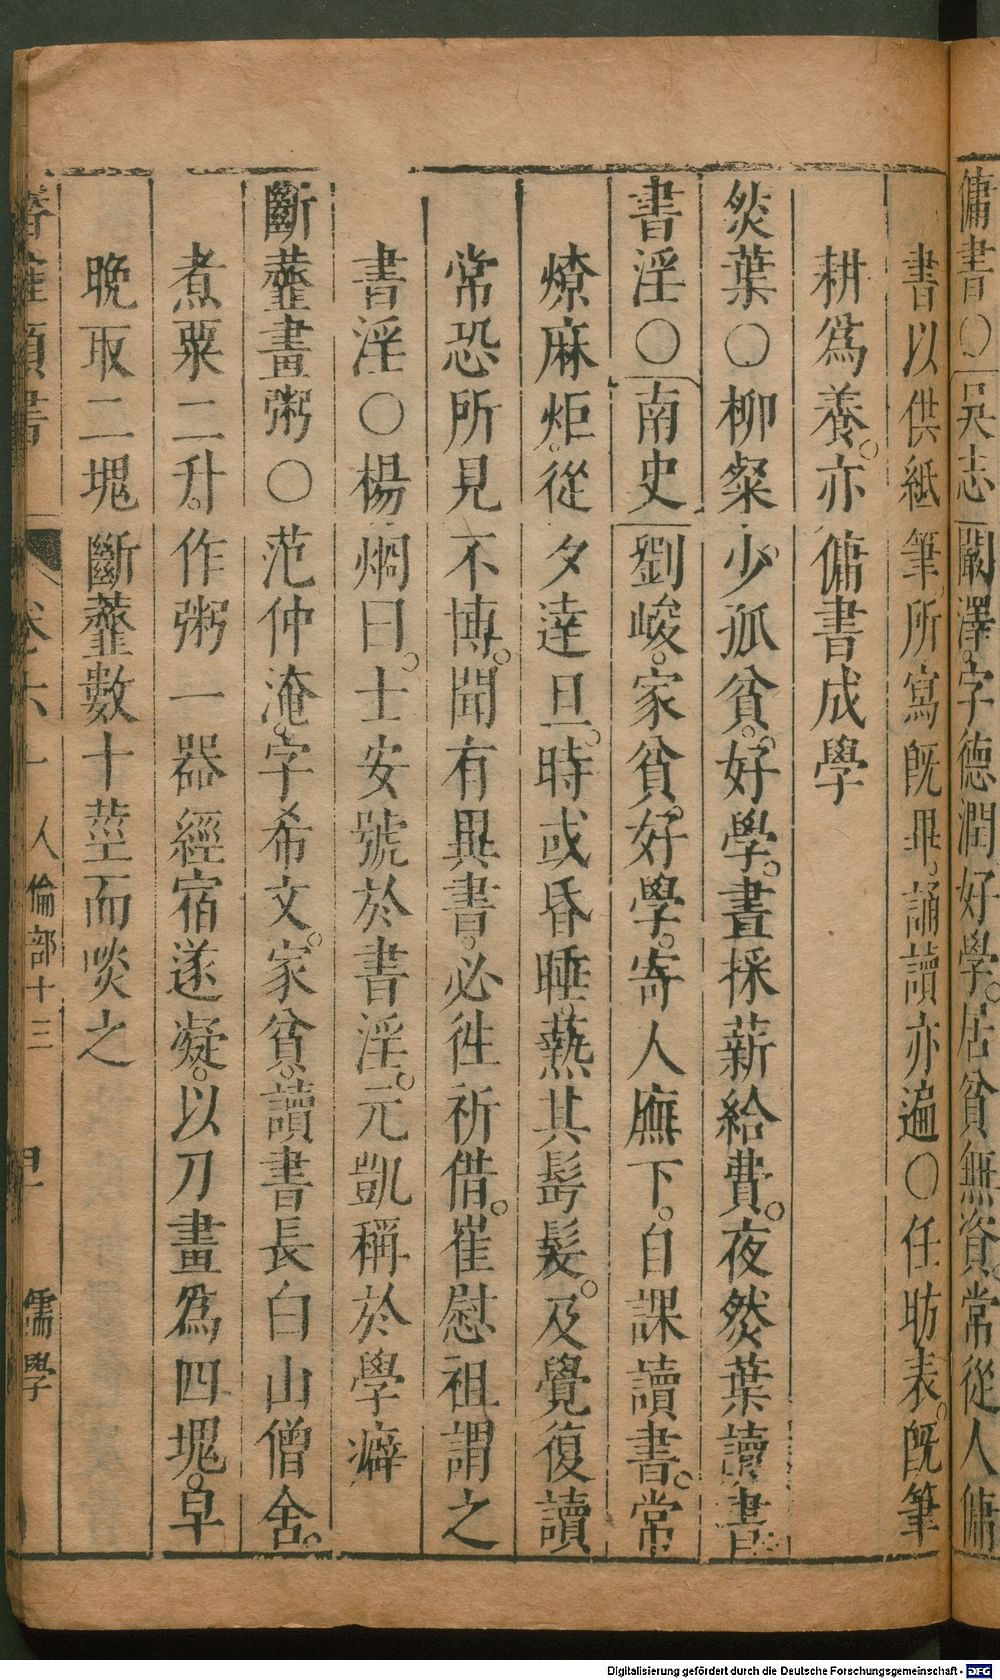 傭書〇吳志嚴澤。字德潤好學。居貧無資。常從人傭
書以供紙筆。所寫旣畢。誦讀亦遍〇任昉表。旣筆
耕爲養。亦傭書成學
然葉〇柳粲少。孤貧。好學。晝採薪給費。夜然葉讀書
書淫〇南史劉峻。家貧。好學。寄人廡下。自課讀書。常
燎麻炬。從夕達旦。時或昏睡。爇其髩髮。及覺復讀
常恐所見不博。聞有異書。必徃祈借。崔慰祖謂之
書淫〇楊烱曰。士安號於書淫。元凱稱於學癖
斷虀畫粥〇范仲淹。字希文。家貧。讀書長白山僧舍。
煮粟二升。作粥一器經宿遂凝。以刀畫爲四塊。早
晚取二塊斷虀數十莖而啖之
卷六十 人倫部十三 儒學
Digitalisierung gefördert durch die Deutsche Forschungsgemeinschaft - DFG